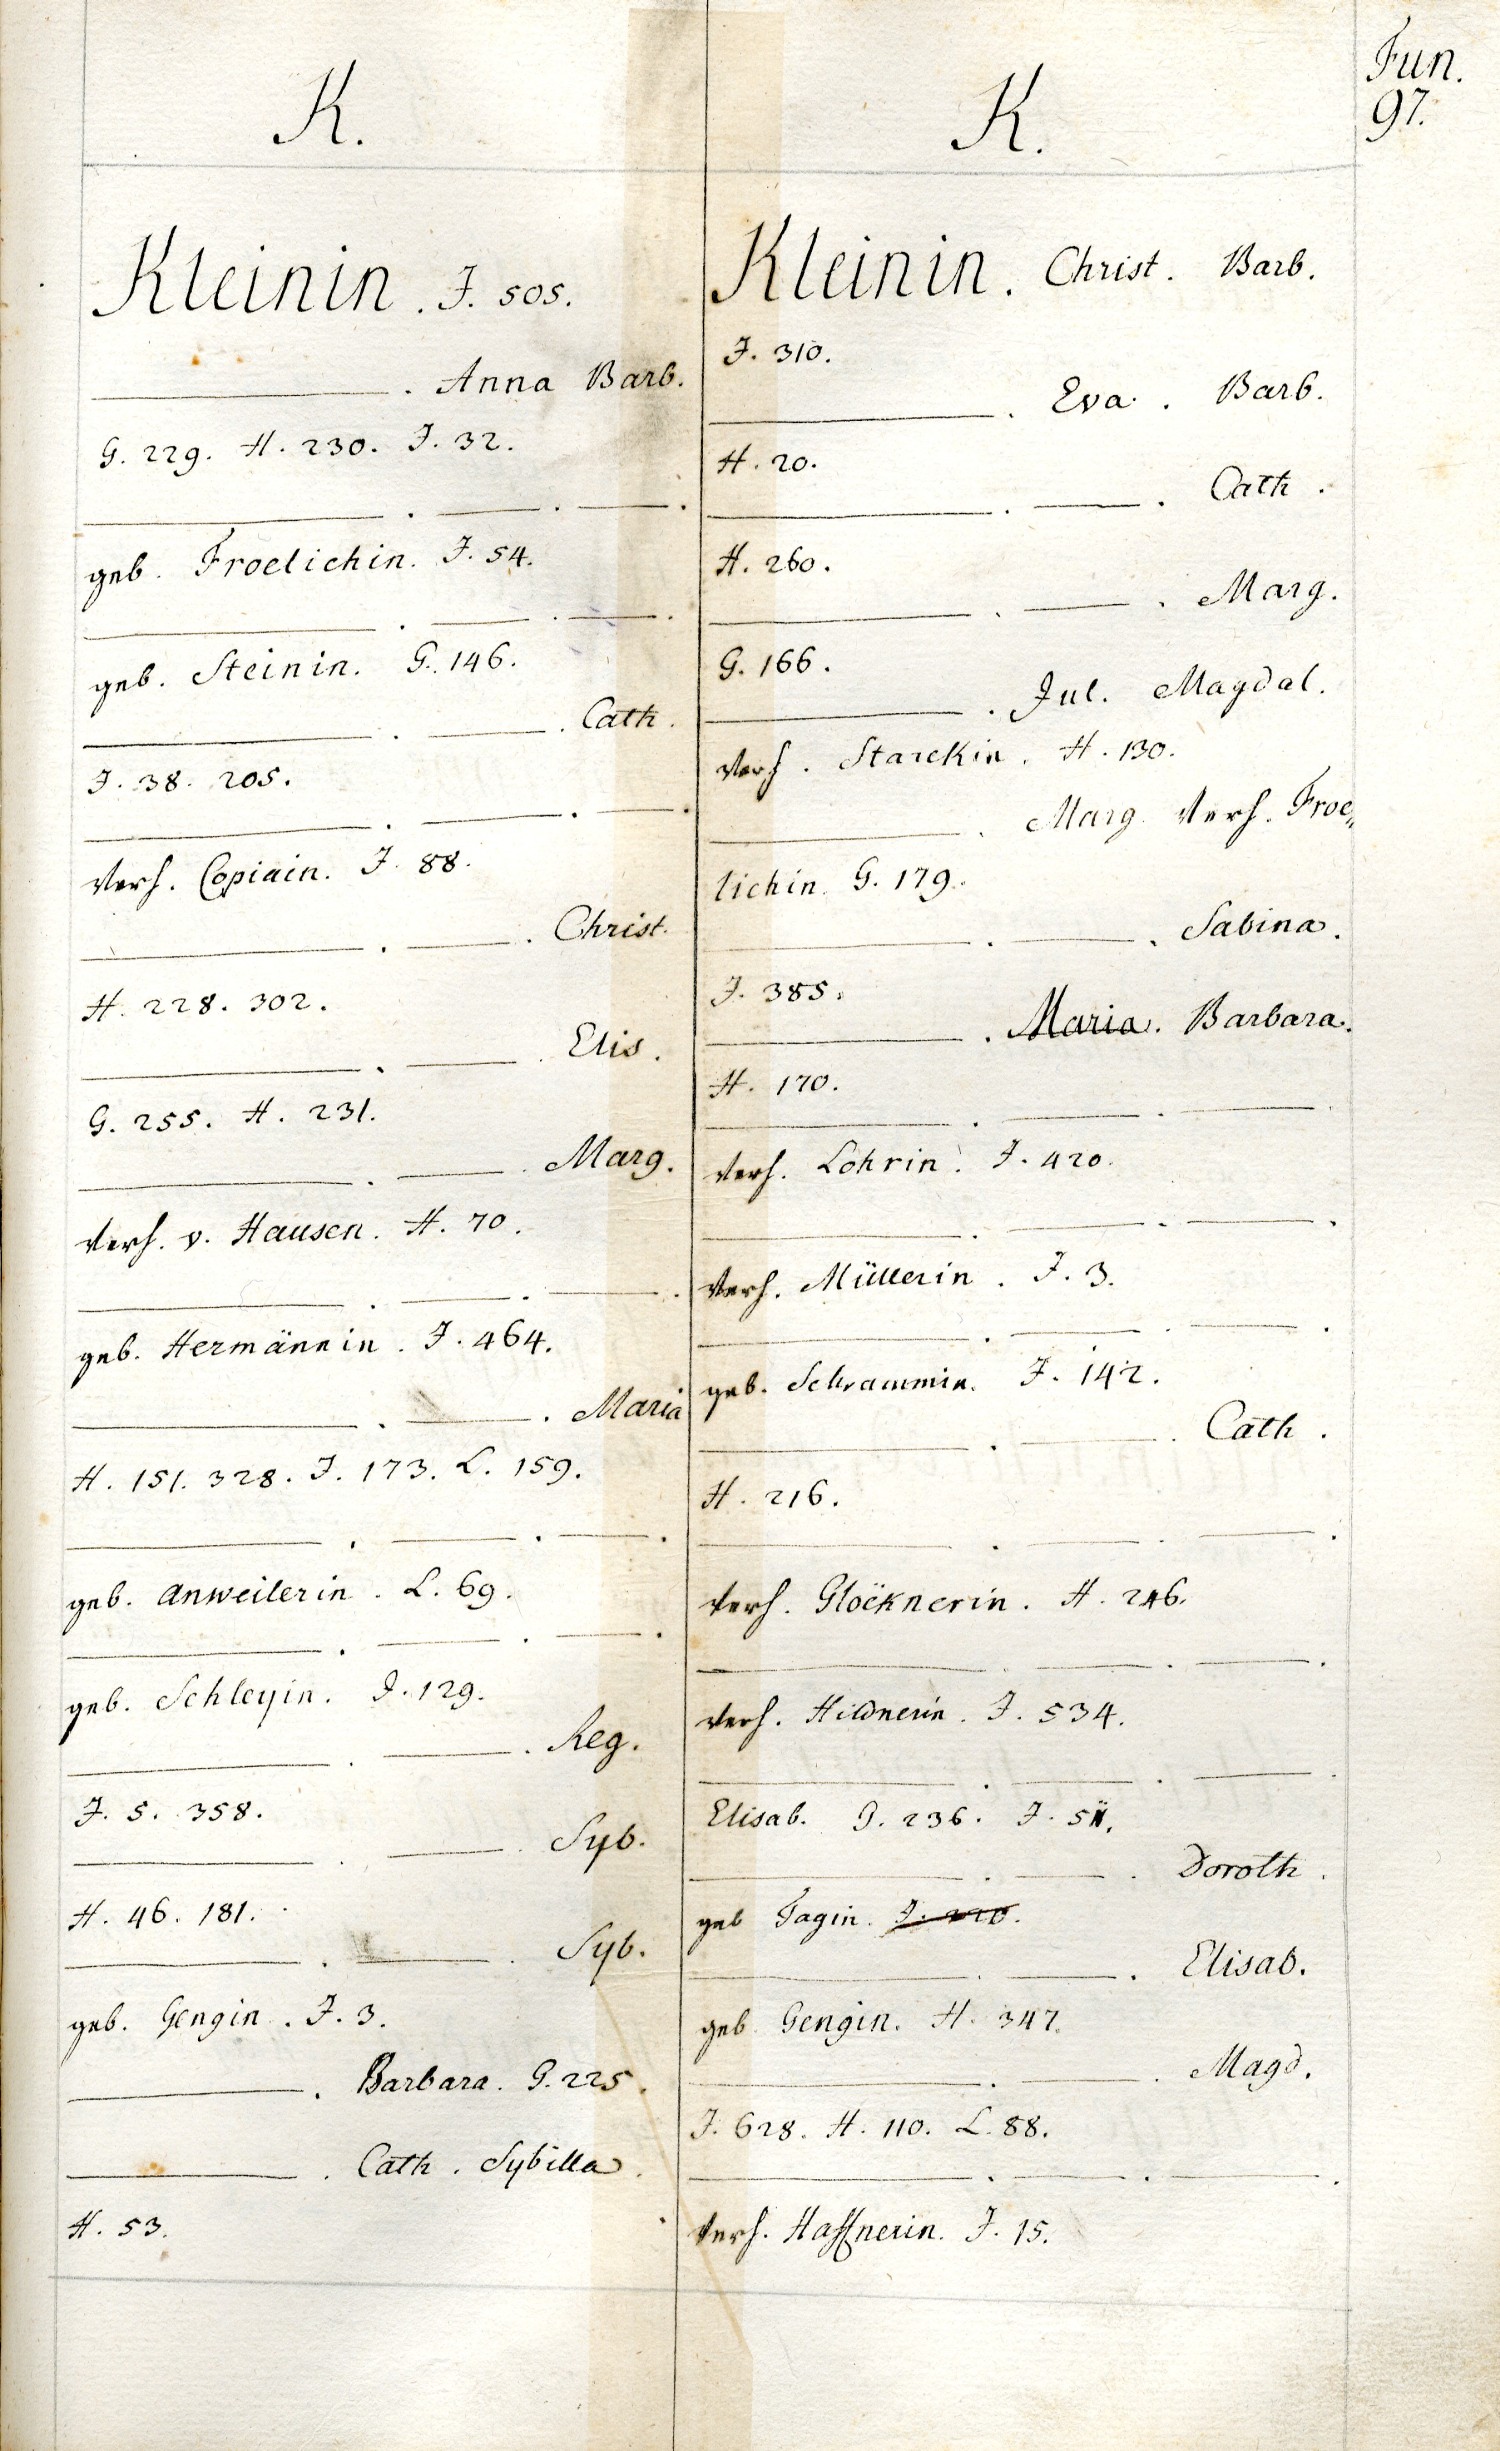 Fun.
97.
K.
Kleinin. J. 505.
———. Anna Barb.
G. 229. H. 230. J. 32.
———. ———. ———.
geb. Froelichin. J. 54.
———. ———. ———.
geb. Steinin. G. 146.
———. ———. Cath.
J. 38. 205.
———. ———. ———.
Verh. Copiain. J. 88.
———. ———. Christ.
H. 228. 302.
———. ———. Elis.
G. 255. H. 231.
———. ———. Marg.
Verh. v. Hausen. H. 70.
———. ———. ———.
geb. Hermännin. J. 464.
———. ———. Maria
H. 151. 328. J. 173. L. 159.
———. ———. ———.
geb. Anweilerin. L. 69.
———. ———. ———.
geb. Schleyin. J. 129.
———. ———. Reg.
J. 5. 358.
———. ———. Syb.
H. 46. 181.
———. ———. Syb.
geb. Gengin. J. 3.
———. Barbara. G. 225.
———. Cath. Sybilla.
H. 53.
K.
Kleinin. Christ. Barb.
J. 310.
———. Eva. Barb.
H. 20.
———. ———. Cath.
H. 260.
———. ———. Marg.
G. 166.
———. Jul. Magdal.
Verh. Starckin. H. 130.
———. Marg. Verh. Froe„
lichin. G. 179.
———. ———. Sabina.
J. 385.
———. Maria. Barbara.
H. 170.
———. ———. ———
Verh. Lohrin. J. 420.
———. ———. ———.
Verh. Müllerin. J. 3.
———. ———. ———.
geb. Schrammin. J. 142.
———. ———. Cath.
H. 216.
———. ———. ———.
Verh. Glöcknerin. H. 246.
———. ———. ———.
Verh. Hildnerin. J. 534.
———. ———. ———.
Elisab. G. 236. J.
———. ———. Doroth.
geb Fagin. J. 220.
———. ———. Elisab.
geb. Gengin. H. 347.
———. ———. Magd.
J. 628. H. 110. L. 88.
———. ———. ———.
Verh. Haffnerin. J. 15.